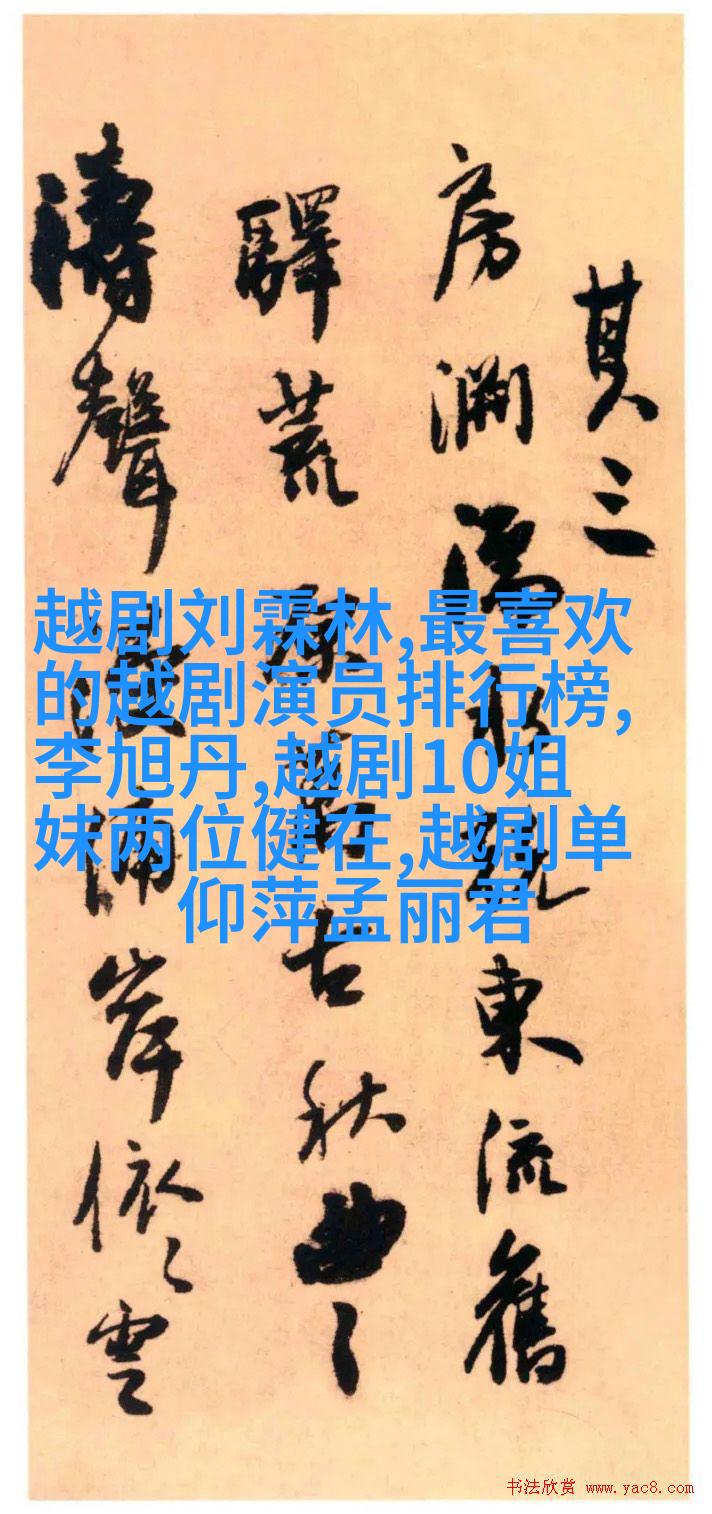 其三
房淵水東流舊
驛荒古秋曲〻
濤聲岸依〻雲
越剧刘霖林,最喜欢
的越剧演员排行榜,
李旭丹,越剧10姐
妹两位健在,越剧单
仰萍孟丽君
书法欣赏 www.yac8.com